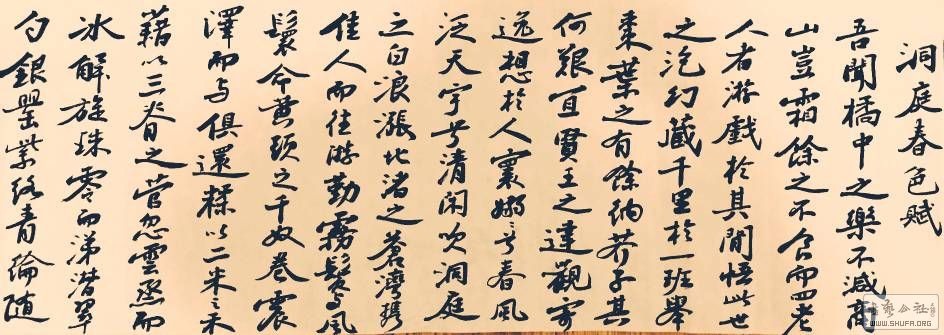 洞庭春色賦
吾聞橘中之樂不減商
山豈霜餘之不食而四老
人者游戲於其間悟此世
之泡幻藏千里於一班舉
棗葉之有餘納芥子其
何艱宜賢王之達觀寄
逸想於人寰嫋〻兮春風
泛天宇兮清閑吹洞庭
之白浪漲北渚之蒼灣攜
佳人而往游勤霧鬢与風
鬟命黃頭之千奴卷震
澤而与俱還糅以二米之禾
藉以三脊之菅忽雲烝而
冰解旋珠零而涕潸翠
勺銀罌紫絡青綸隨
WWW.SHUFA.ORG